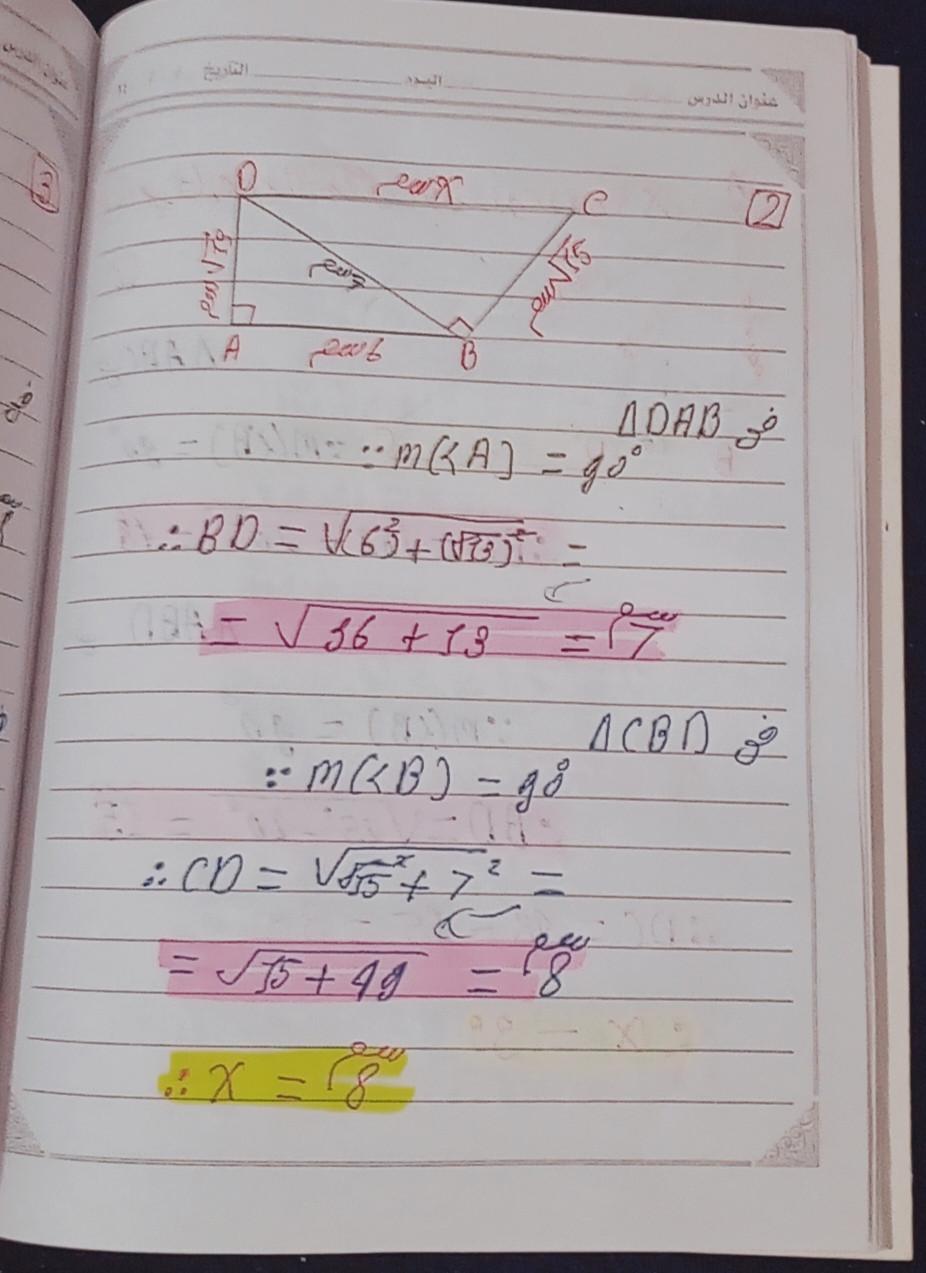 عنوان الدرس اليوم التاريخ
[2]
[3]
D x سم C
√13 سم
7 سم
√15 سم
A 6 سم B
في ΔDAB
∵ m(∠A) = 90°
∴ BD = √(6)² + (√13)² =
= √36 + 13 = 7 سم
في ΔCBD
∵ m(∠B) = 90°
∴ CD = √√15² + 7² =
= √15 + 49 = 8 سم
∴ x = 8 سم